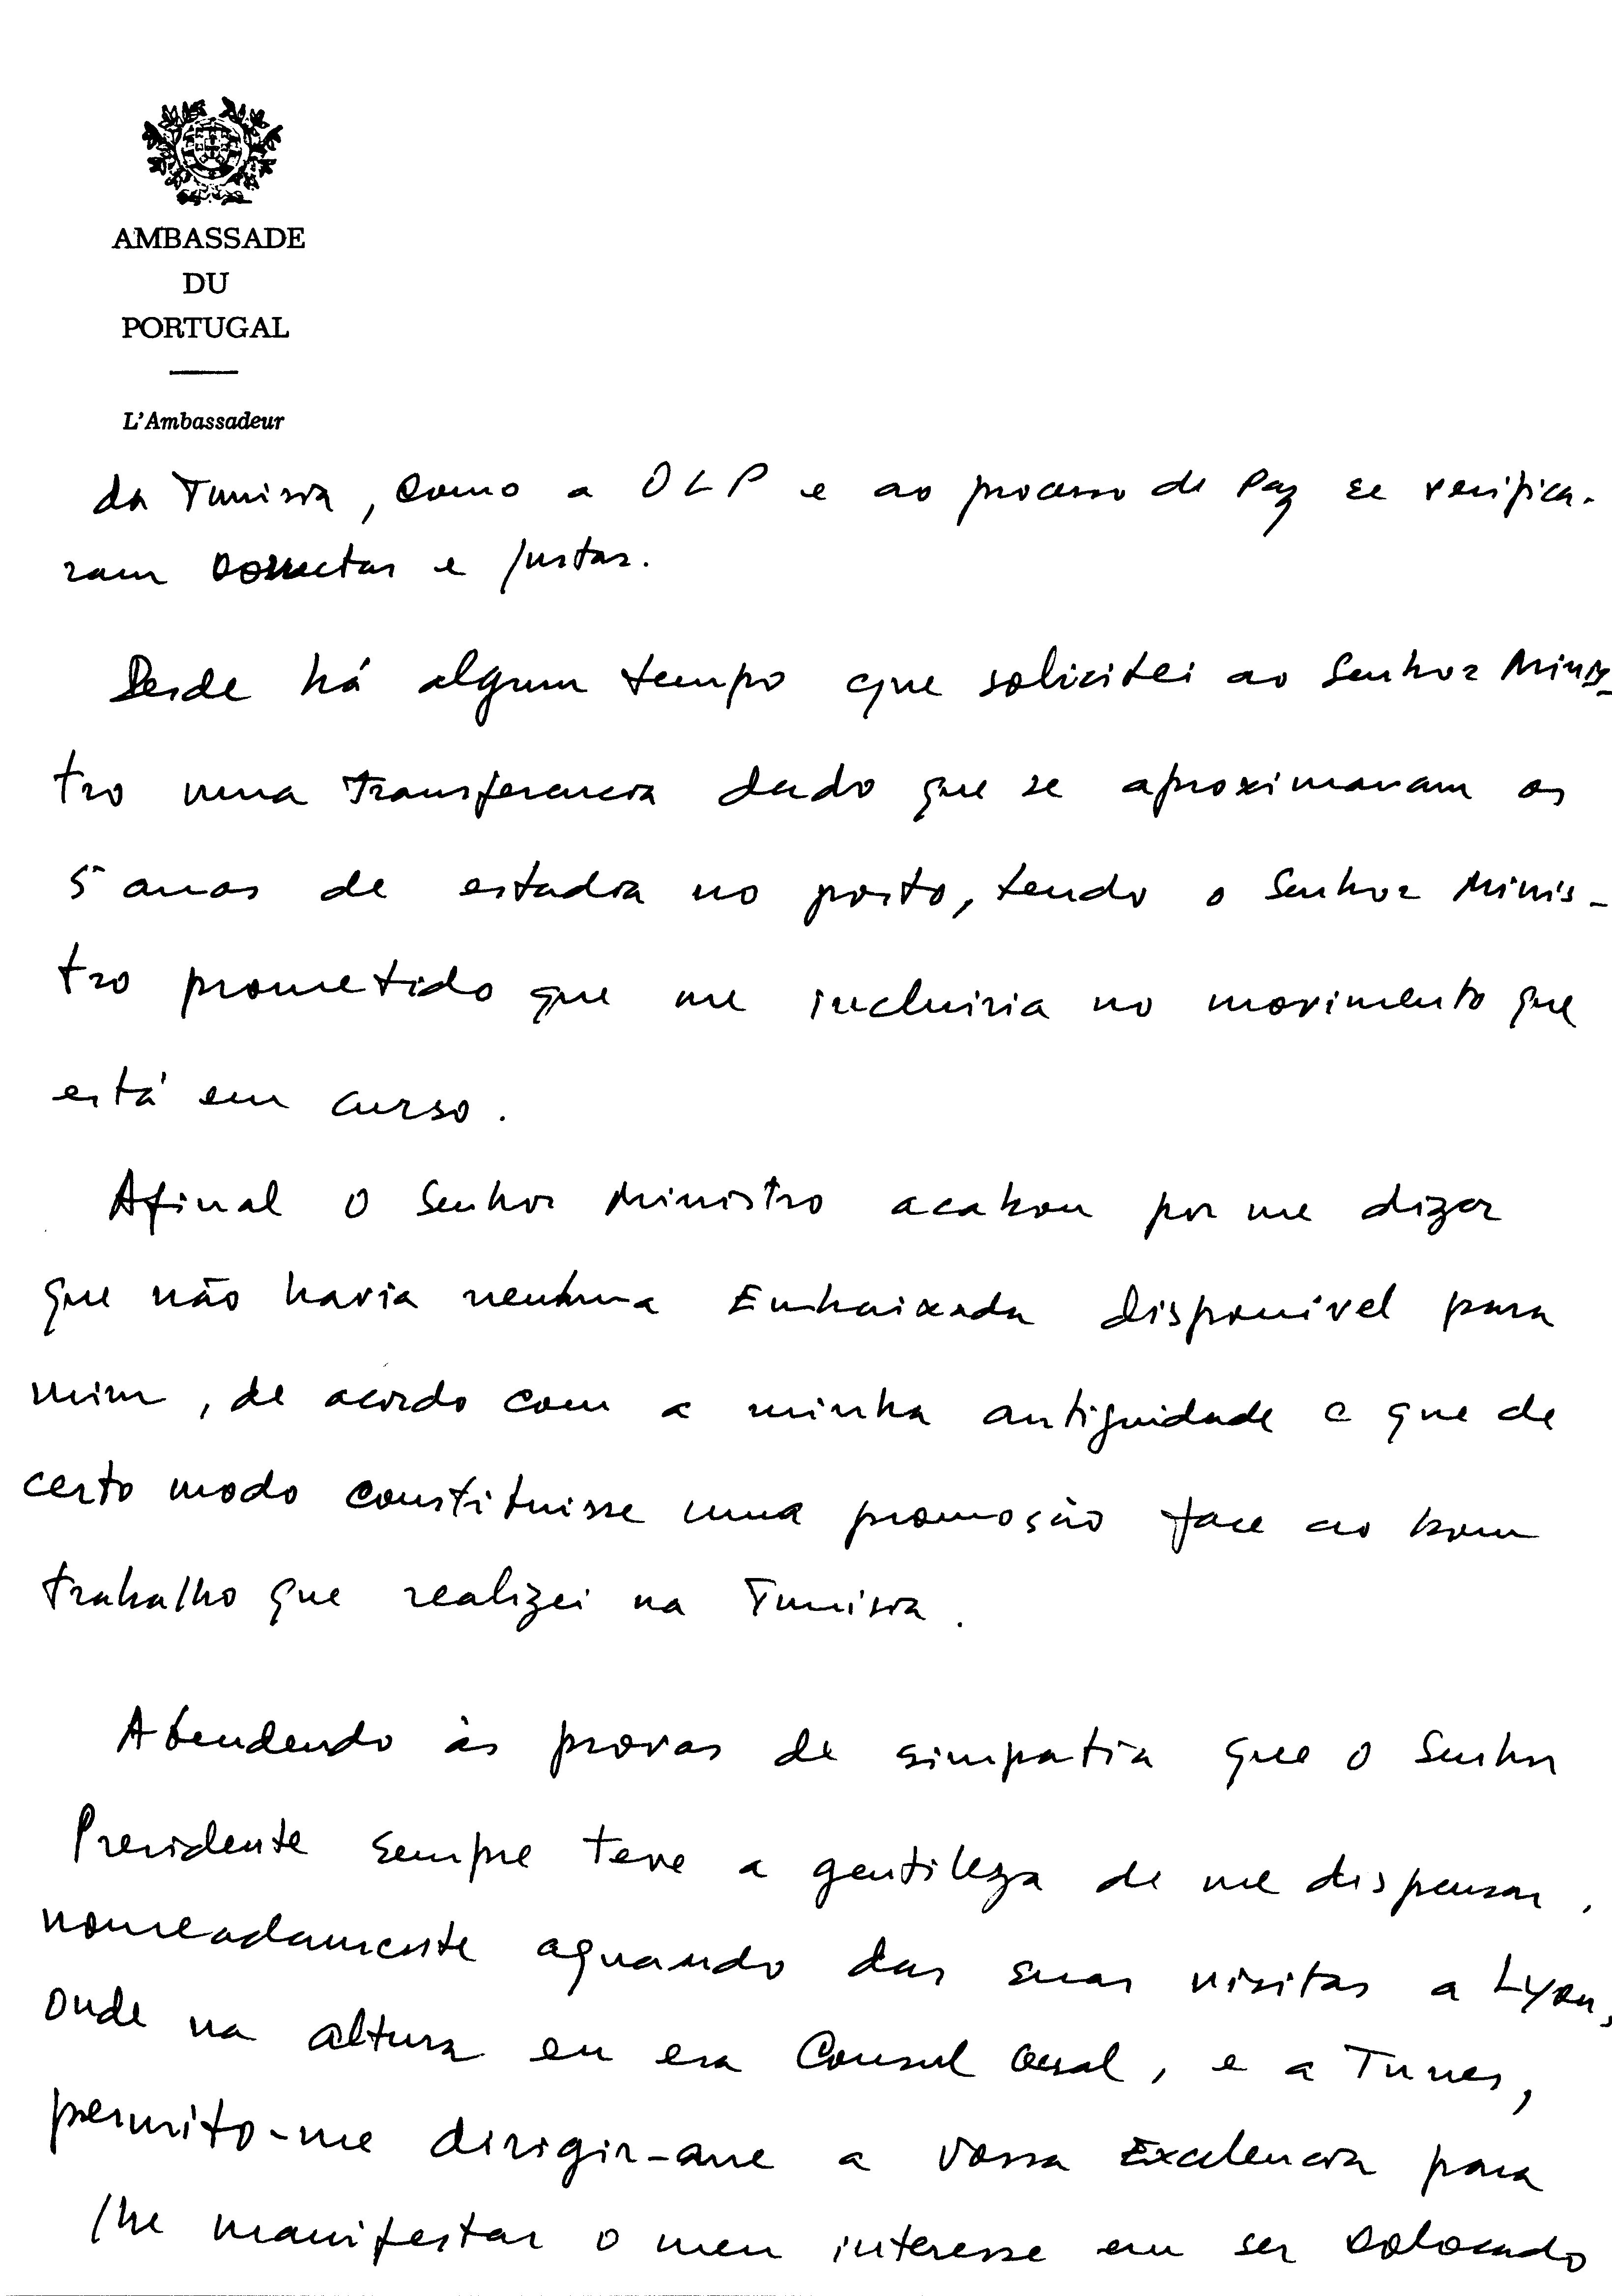 AMBASSADE
DU
PORTUGAL
L'Ambassadeur
da Tunisia, como a OLP e ao processo de Paz se verifica-
ram correctas e justas.
Desde há algum tempo que solicitei ao Senhor Minis-
tro uma transferencia dado que se aproximavam os
5 anos de estadia no posto, tendo o Senhor Minis-
tro prometido que me incluiria no movimento que
está em curso.
Afinal o Senhor Ministro acabou por me dizer
que não havia nenhuma Embaixada disponivel para
mim, de acordo com a minha antiguidade e que de
certo modo constituisse uma promoção face ao bom
trabalho que realizei na Tunisia.
Atendendo às provas de simpatia que o Senhor
Presidente sempre teve a gentileza de me dispensar,
nomeadamente aquando das suas visitas a Lyon,
onde na altura eu era Consul Geral, e a Tunes,
permito-me dirigir-me a Vossa Excelencia para
lhe manifestar o meu interesse em ser colocado